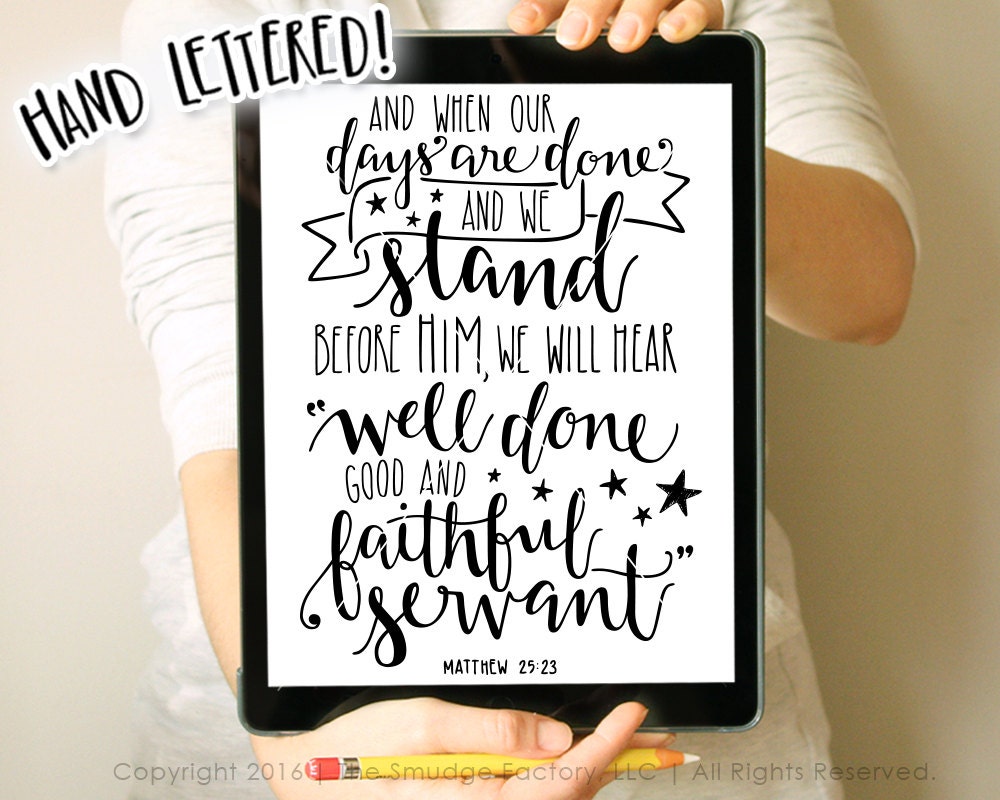 HAND LETTERED!
AND WHEN OUR
days are done
AND WE
stand
BEFORE HIM, WE WILL HEAR
"well done
GOOD AND
faithful
servant"
MATTHEW 25:23
Copyright 2016 | The Smudge Factory, LLC | All Rights Reserved.